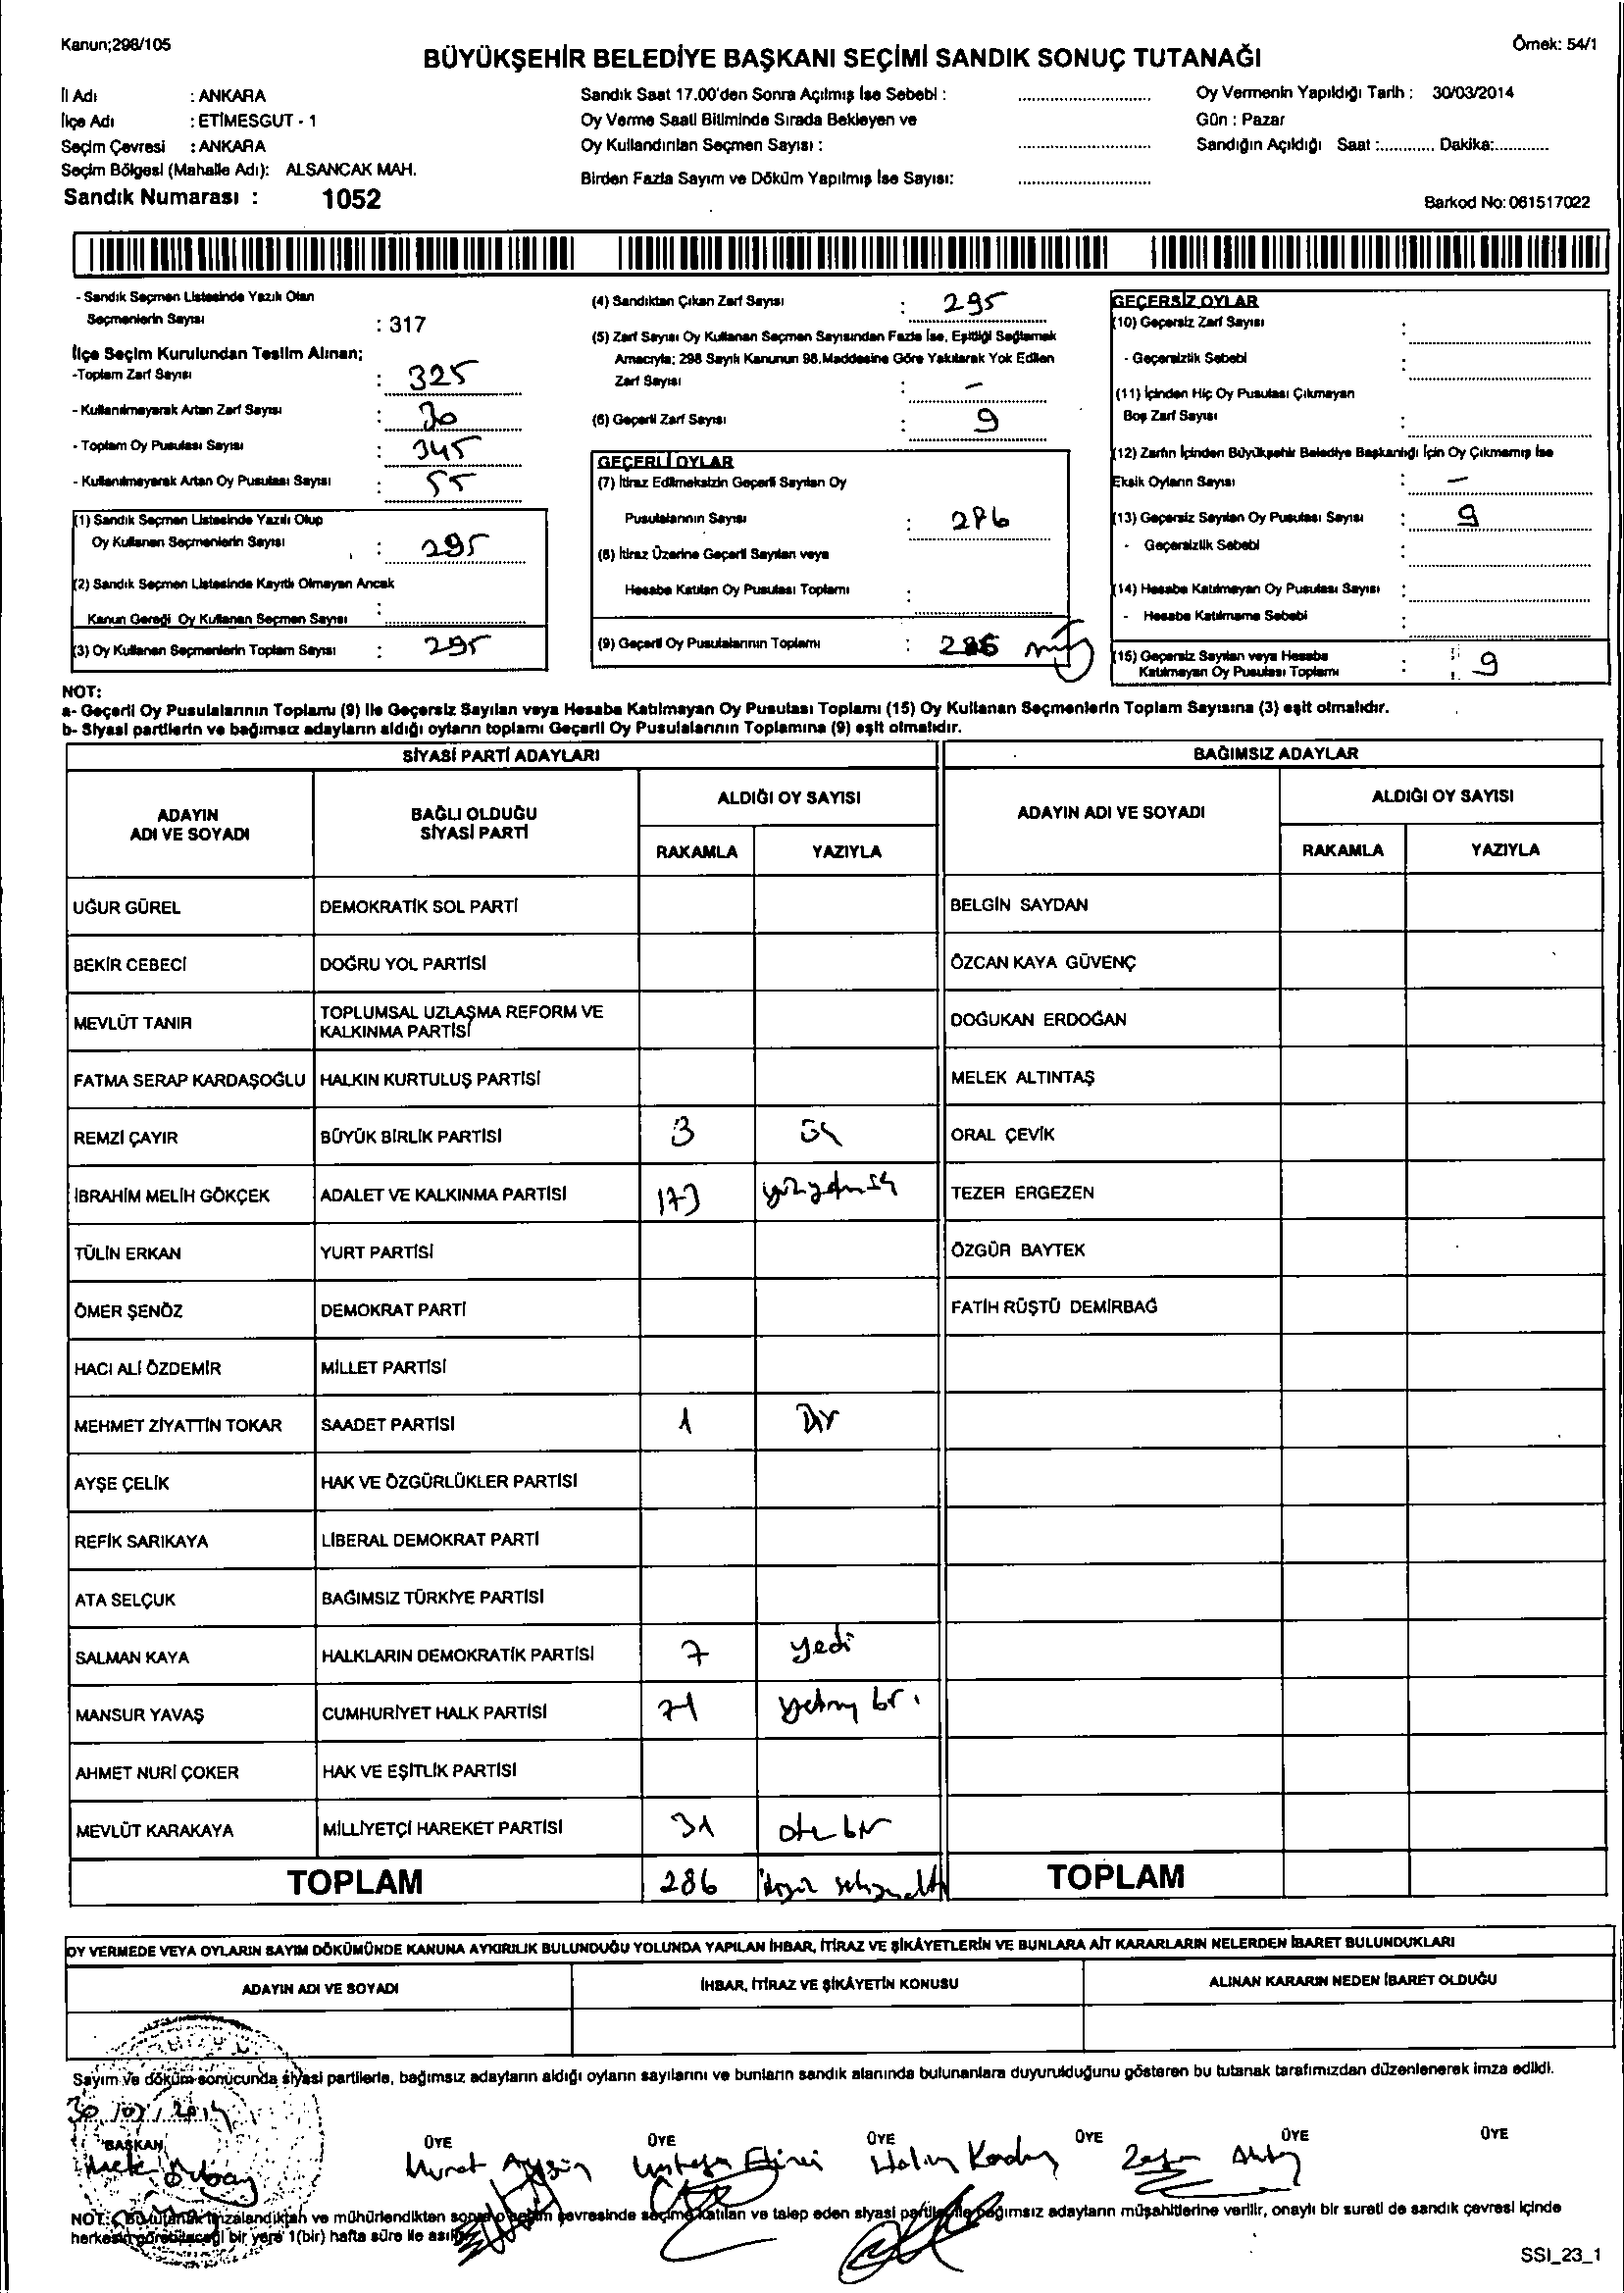 Kanun;298/105
Örnek: 54/1
BÜYÜKŞEHİR BELEDİYE BAŞKANI SEÇİMİ SANDIK SONUÇ TUTANAĞI
İl Adı : ANKARA
İlçe Adı : ETİMESGUT - 1
Seçim Çevresi : ANKARA
Seçim Bölgesi (Mahalle Adı): ALSANCAK MAH.
Sandık Numarası : 1052
Sandık Saat 17.00'den Sonra Açılmış İse Sebebi :
Oy Verme Saati Bitiminde Sırada Bekleyen ve
Oy Kullandırılan Seçmen Sayısı :
Birden Fazla Sayım ve Döküm Yapılmış İse Sayısı:
Oy Vermenin Yapıldığı Tarih : 30/03/2014
Gün : Pazar
Sandığın Açıldığı Saat :............ Dakika:............
Barkod No: 061517022
- Sandık Seçmen Listesinde Yazılı Olan
Seçmenlerin Sayısı : 317
İlçe Seçim Kurulundan Teslim Alınan;
-Toplam Zarf Sayısı : 325
- Kullanılmayarak Artan Zarf Sayısı : 30
- Toplam Oy Pusulası Sayısı : 345
- Kullanılmayarak Artan Oy Pusulası Sayısı : 55
(1) Sandık Seçmen Listesinde Yazılı Olup
Oy Kullanan Seçmenlerin Sayısı : 295
(2) Sandık Seçmen Listesinde Kayıtlı Olmayan Ancak
Kanun Gereği Oy Kullanan Seçmen Sayısı :
(3) Oy Kullanan Seçmenlerin Toplam Sayısı : 295
(4) Sandıktan Çıkan Zarf Sayısı : 295
(5) Zarf Sayısı Oy Kullanan Seçmen Sayısından Fazla İse, Eşitliği Sağlamak
Amacıyla; 298 Sayılı Kanunun 98.Maddesine Göre Yakılarak Yok Edilen
Zarf Sayısı : -
(6) Geçerli Zarf Sayısı : 9
GEÇERLİ OYLAR
(7) İtiraz Edilmeksizin Geçerli Sayılan Oy
Pusulalarının Sayısı : 286
(8) İtiraz Üzerine Geçerli Sayılan veya
Hesaba Katılan Oy Pusulası Toplamı :
(9) Geçerli Oy Pusulalarının Toplamı : 286
GEÇERSİZ OYLAR
(10) Geçersiz Zarf Sayısı :
- Geçersizlik Sebebi :
(11) İçinden Hiç Oy Pusulası Çıkmayan
Boş Zarf Sayısı :
(12) Zarfın İçinden Büyükşehir Belediye Başkanlığı İçin Oy Çıkmamış İse
Eksik Oyların Sayısı : -
(13) Geçersiz Sayılan Oy Pusulası Sayısı : 9
- Geçersizlik Sebebi :
(14) Hesaba Katılmayan Oy Pusulası Sayısı :
- Hesaba Katılmama Sebebi :
(15) Geçersiz Sayılan veya Hesaba
Katılmayan Oy Pusulası Toplamı : 9
NOT:
a- Geçerli Oy Pusulalarının Toplamı (9) ile Geçersiz Sayılan veya Hesaba Katılmayan Oy Pusulası Toplamı (15) Oy Kullanan Seçmenlerin Toplam Sayısına (3) eşit olmalıdır.
b- Siyasi partilerin ve bağımsız adayların aldığı oyların toplamı Geçerli Oy Pusulalarının Toplamına (9) eşit olmalıdır.
SİYASİ PARTİ ADAYLARI
BAĞIMSIZ ADAYLAR
ADAYIN ADI VE SOYADI
BAĞLI OLDUĞU SİYASİ PARTİ
ALDIĞI OY SAYISI
RAKAMLA YAZIYLA
ADAYIN ADI VE SOYADI
ALDIĞI OY SAYISI
RAKAMLA YAZIYLA
UĞUR GÜREL DEMOKRATİK SOL PARTİ BELGİN SAYDAN
BEKİR CEBECİ DOĞRU YOL PARTİSİ ÖZCAN KAYA GÜVENÇ
MEVLÜT TANIR TOPLUMSAL UZLAŞMA REFORM VE KALKINMA PARTİSİ DOĞUKAN ERDOĞAN
FATMA SERAP KARDAŞOĞLU HALKIN KURTULUŞ PARTİSİ MELEK ALTINTAŞ
REMZİ ÇAYIR BÜYÜK BİRLİK PARTİSİ 3 üç ORAL ÇEVİK
İBRAHİM MELİH GÖKÇEK ADALET VE KALKINMA PARTİSİ 173 TEZER ERGEZEN
TÜLİN ERKAN YURT PARTİSİ ÖZGÜR BAYTEK
ÖMER ŞENÖZ DEMOKRAT PARTİ FATİH RÜŞTÜ DEMİRBAĞ
HACI ALİ ÖZDEMİR MİLLET PARTİSİ
MEHMET ZİYATTİN TOKAR SAADET PARTİSİ 1 Bir
AYŞE ÇELİK HAK VE ÖZGÜRLÜKLER PARTİSİ
REFİK SARIKAYA LİBERAL DEMOKRAT PARTİ
ATA SELÇUK BAĞIMSIZ TÜRKİYE PARTİSİ
SALMAN KAYA HALKLARIN DEMOKRATİK PARTİSİ 7 yedi
MANSUR YAVAŞ CUMHURİYET HALK PARTİSİ 71 yetmiş bir
AHMET NURİ ÇOKER HAK VE EŞİTLİK PARTİSİ
MEVLÜT KARAKAYA MİLLİYETÇİ HAREKET PARTİSİ 31 otuz bir
TOPLAM 286 ikiyüz seksenaltı TOPLAM
OY VERMEDE VEYA OYLARIN SAYIM DÖKÜMÜNDE KANUNA AYKIRILIK BULUNDUĞU YOLUNDA YAPILAN İHBAR, İTİRAZ VE ŞİKÂYETLERİN VE BUNLARA AİT KARARLARIN NELERDEN İBARET BULUNDUKLARI
ADAYIN ADI VE SOYADI İHBAR, İTİRAZ VE ŞİKÂYETİN KONUSU ALINAN KARARIN NEDEN İBARET OLDUĞU
Sayım ve döküm sonucunda siyasi partilerle, bağımsız adayların aldığı oyların sayılarını ve bunların sandık alanında bulunanlara duyurulduğunu gösteren bu tutanak tarafımızdan düzenlenerek imza edildi.
30/03/2014
BAŞKAN ÜYE ÜYE ÜYE ÜYE ÜYE ÜYE
Murat Mustafa
NOT: Bu tutanak imzalandıktan ve mühürlendikten sonra o seçim çevresinde seçime katılan ve talep eden siyasi partiler ile bağımsız adayların müşahitlerine verilir, onaylı bir sureti de sandık çevresi içinde
herkesin görebileceği bir yere 1(bir) hafta süre ile asılır.
SSI_23_1